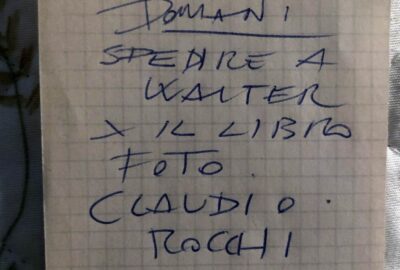 DOMANI
SPEDIRE A
WALTER
X IL LIBRO
FOTO.
CLAUDIO.
ROCCHI